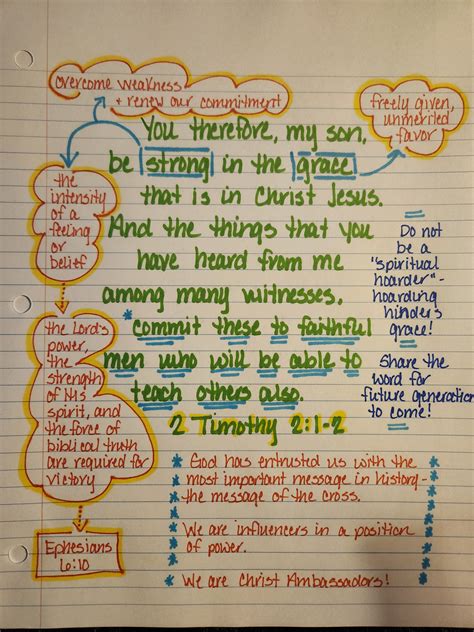 overcome weakness
+ renew our commitment
freely given,
unmerited
favor
You therefore, my son,
be strong in the grace
that is in Christ Jesus.
And the things that you
have heard from me
among many witnesses,
*commit these to faithful
men who will be able to
teach others also.
2 Timothy 2:1-2
the
intensity
of a
feeling
or
belief
the Lord's
power,
the
strength
of His
spirit, and
the force of
biblical truth
are required for
victory
Ephesians
6:10
Do not
be a
"spiritual
hoarder"-
hoarding
hinders
grace!
Share the
word for
future generation
to come!
* God has entrusted us with the
* most important message in history-
* the message of the cross.
* We are influencers in a position
* of power.
* We are Christ Ambassadors! *